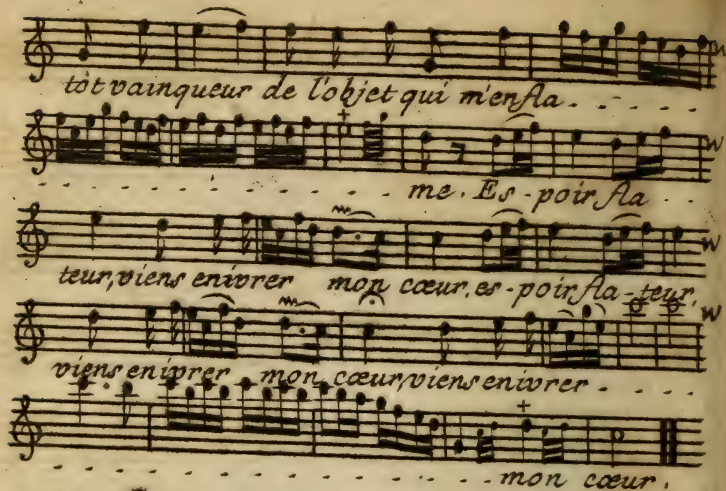 tôt vainqueur de l'objet qui m'enfla - - - - -
- - - - - - - - - - - - me. Es - poir fla - -
teur, viens enivrer mon cœur, es - poir fla - teur,
viens enivrer mon cœur, viens enivrer - - - - -
- - - - - - - - - - - - - - mon cœur.